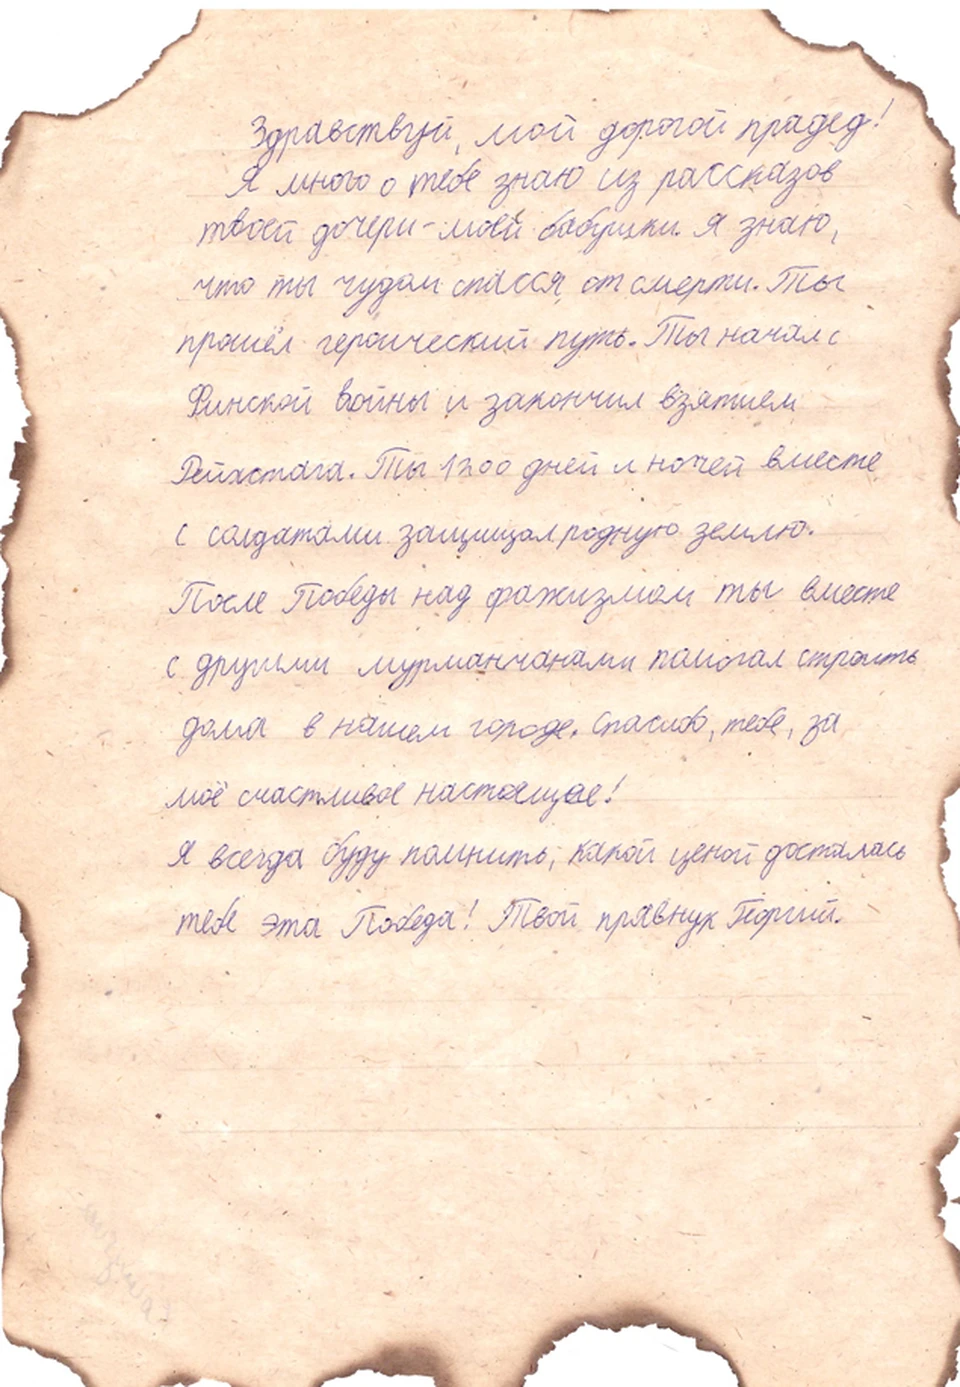 Здравствуй, мой дорогой прадед!
Я много о тебе знаю из рассказов
твоей дочери - моей бабушки. Я знаю,
что ты чудом спасся от смерти. Ты
прошёл героический путь. Ты начал с
Финской войны и закончил взятием
Рейхстага. Ты 1200 дней и ночей вместе
с солдатами защищал родную землю.
После Победы над фажизмом ты вместе
с другими мурманчанами помогал строить
дома в нашем городе. Спасибо, тебе, за
моё счастливое настоящее!
Я всегда буду помнить, какой ценой досталась
тебе эта Победа! Твой правнук Георгий.